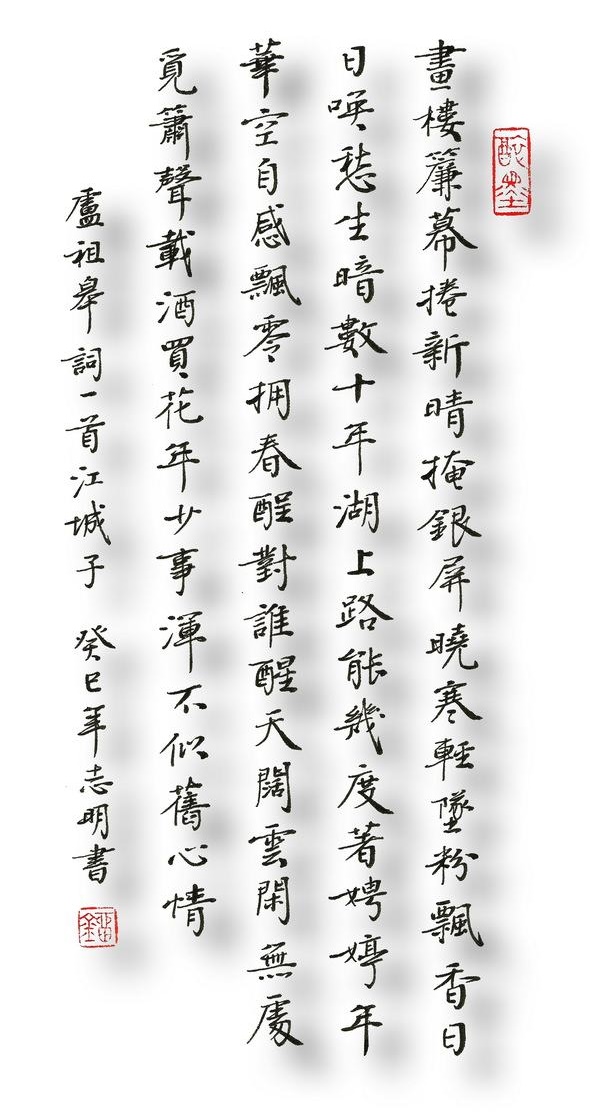 畫樓簾幕捲新晴掩銀屏曉寒輕墜粉飄香日
日喚愁生暗數十年湖上路能幾度著娉婷年
華空自感飄零拥春酲對誰醒天闊雲閑無處
覓簫聲載酒買花年少事渾不似舊心情
盧祖皋詞一首江城子 癸巳年志明書